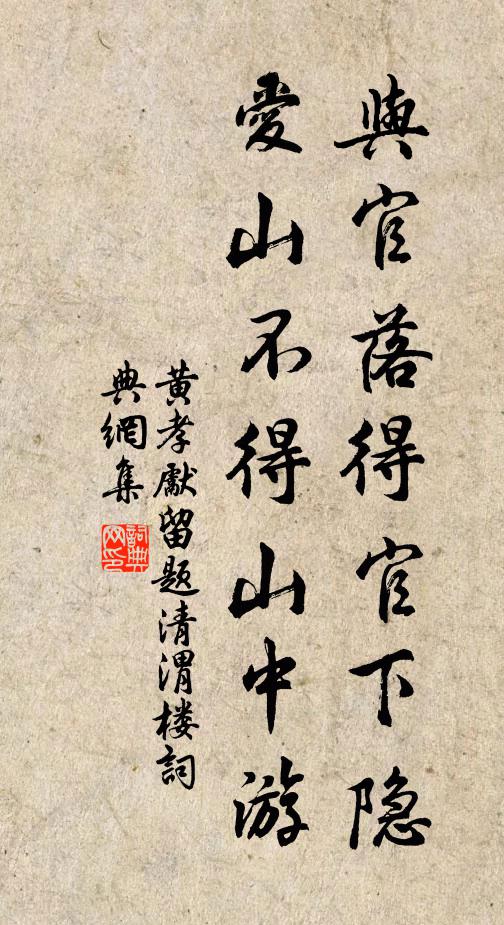 與官落得官下隐
愛山不得山中游
黃孝獻留题清渭楼詞
典網集
詞典
网印